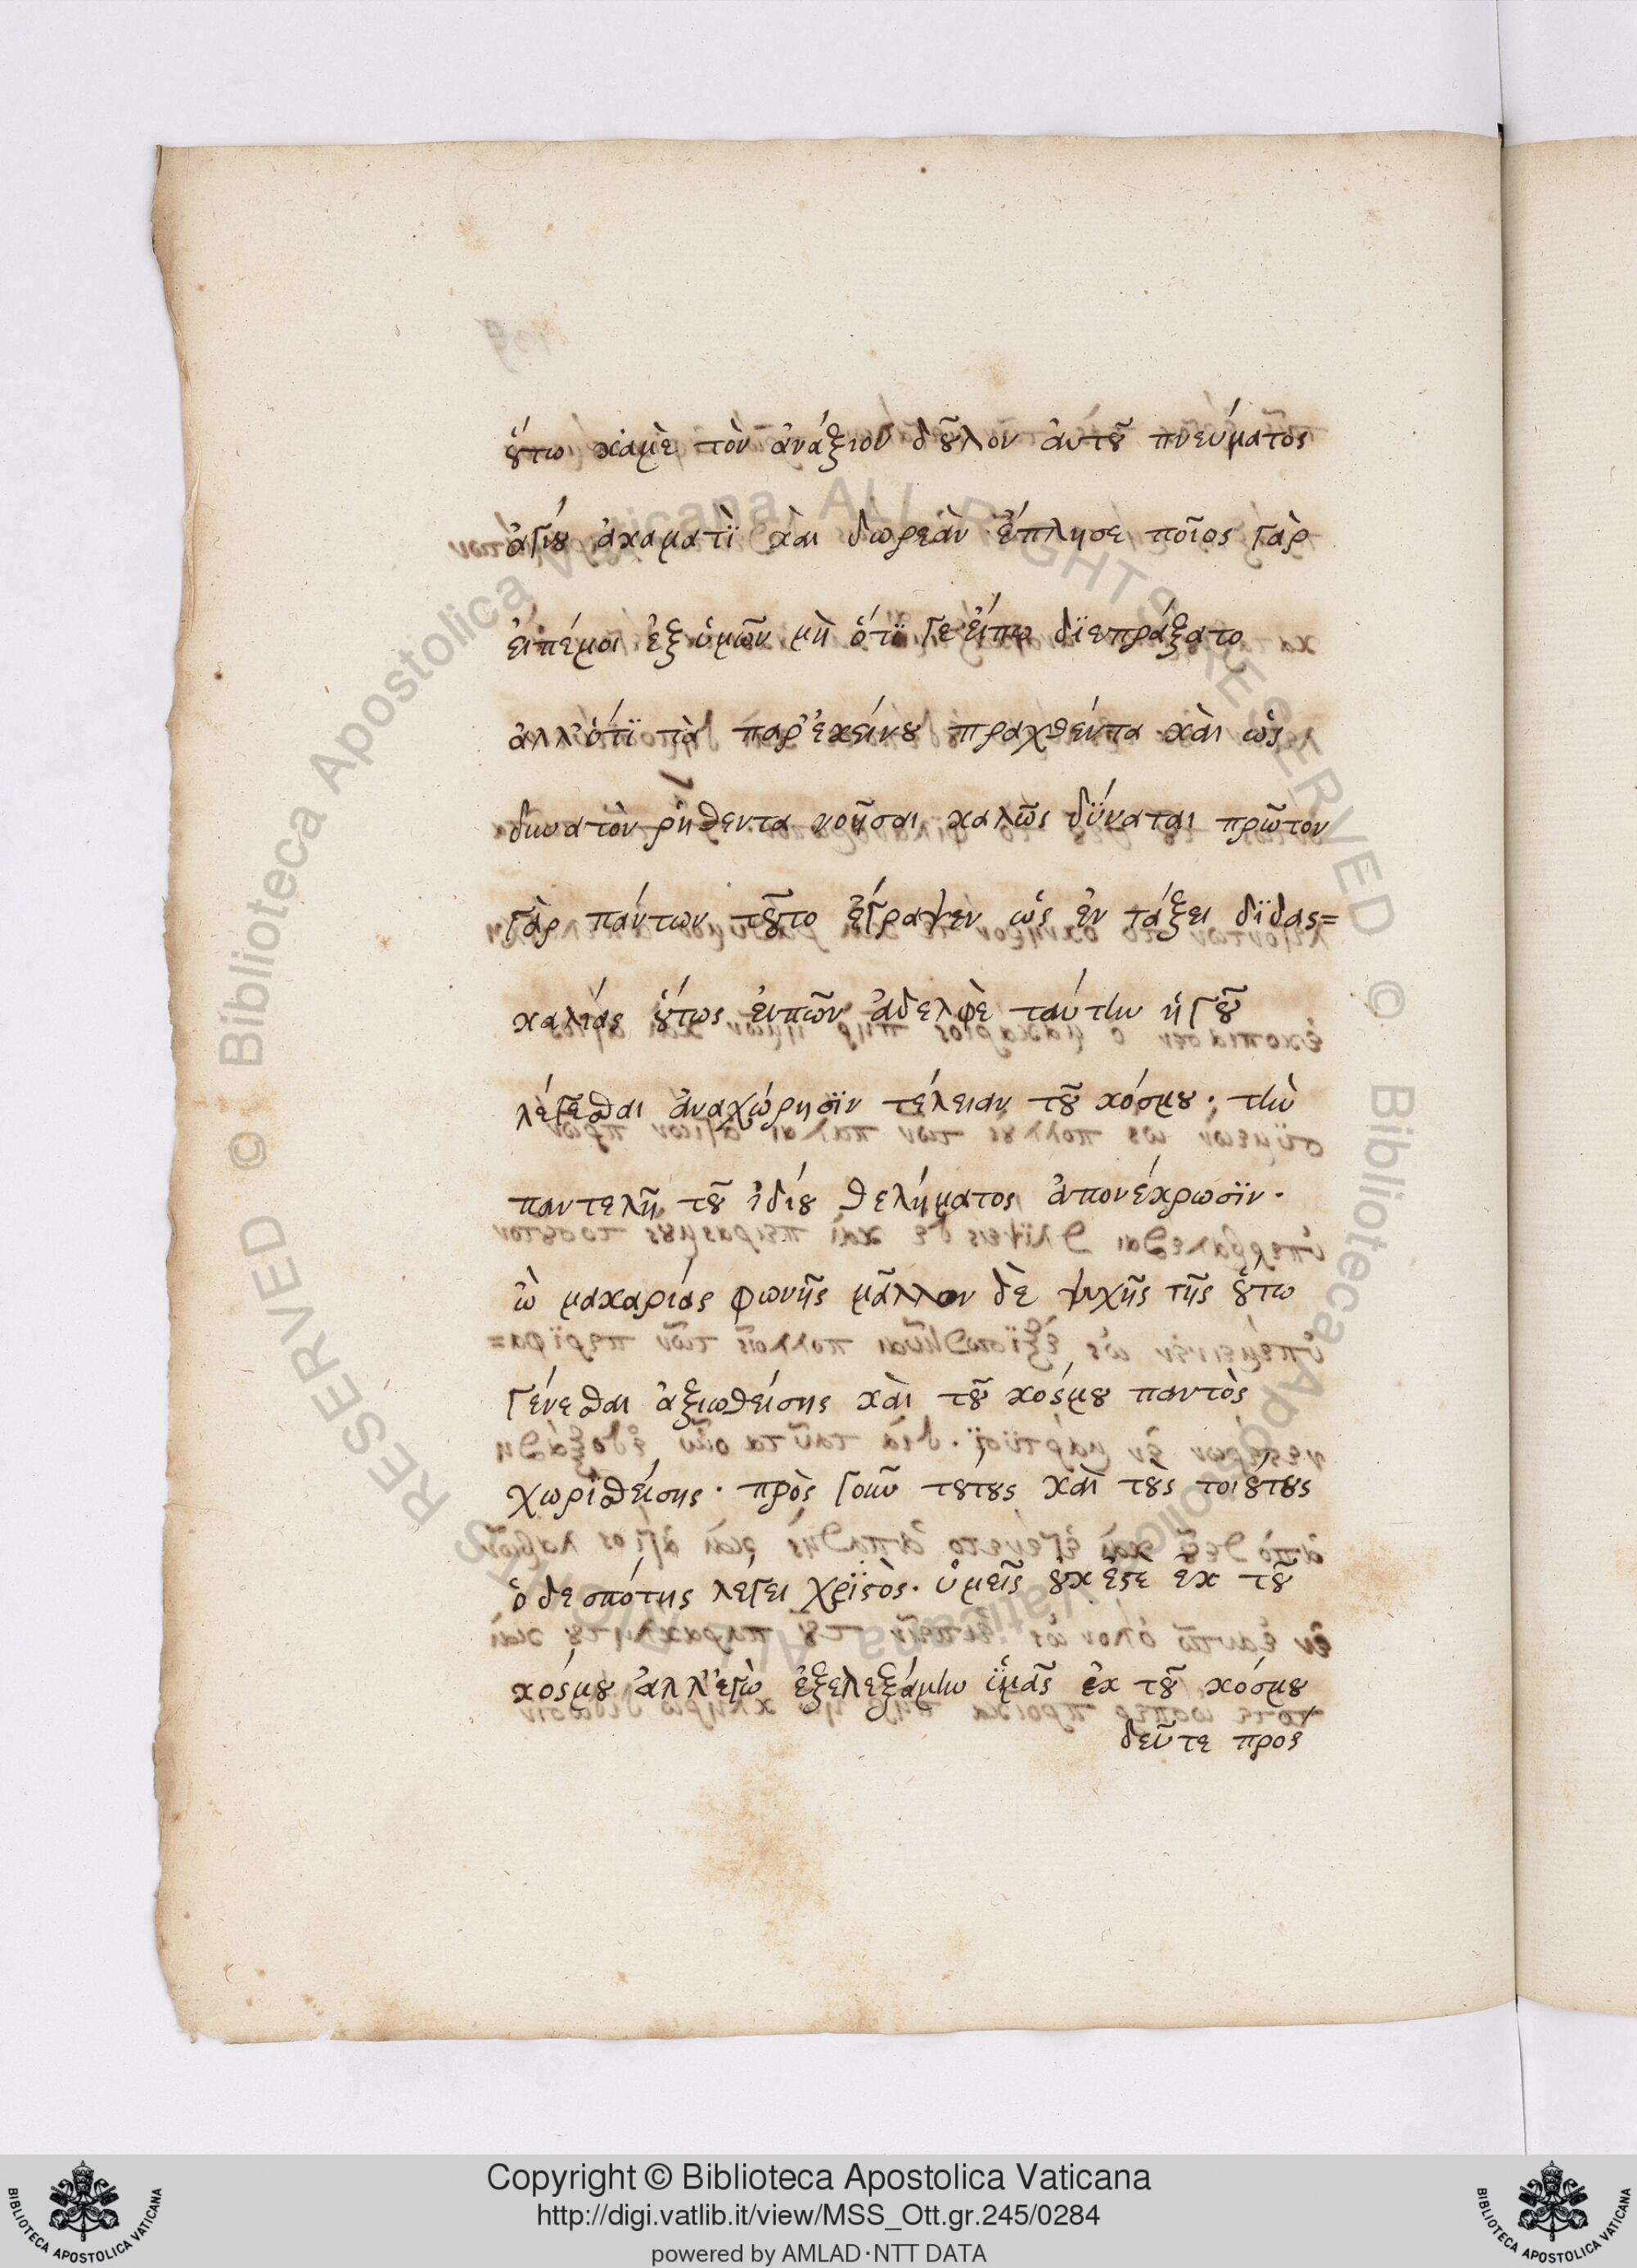 ȣ́τω κἀμὲ τὸν ἀνάξιον δȣ͂λον ἀυτȣ͂ πνεύματος
ἁγίȣ ἀκαματὶ κὰι δωρεὰν ἔπλησε ποῖος γὰρ
ἐιπέμοι ἐξ ὑμῶν μὴ ὅτϊ γε ἔιπω δϊεπράξατο
ἀλλ' ὅτϊ τὰ παρ' ἐκείνȣ πραχθέντα κὰι ὡς
δυνατὸν ῥηθέντα νοῆσαι καλῶς δΰναται πρῶτον
γὰρ πάντων τȣ͂το ἔγραψεν ὡς ἐν τάξει δϊδας=
καλίας ȣ́τως ἐιπῶν ἀδελφὲ ταύτην ἡγȣ͂
λέγεσθαι ἀναχώρησϊν τέλειαν τȣ͂ κόσμȣ · τὴν
παντελῆ τȣ͂ ἰδίȣ θελήματος ἀπονέκρωσϊν ·
ὢ μακαρίας φωνῆς μᾶλλον δὲ ψυχῆς τῆς ȣ́τω
γένεσθαι ἀξιωθείσης κὰι τȣ͂ κόσμȣ παντὸς
χωρϊσθείσης · πρὸς γοῦν τȣ́τȣς κὰι τȣ̀ς τοιȣ́τȣς
ὁ δεσπότης λέγει χρϊϛὸς · ὑμεῖς ȣ̓κ ἐϛὲ ἐκ τȣ͂
κόσμȣ ἀλλ' ἐγὼ ἐξελεξάμην ὑμᾶς ἐκ τȣ͂ κόσμȣ
δεῦτε προς
Copyright © Biblioteca Apostolica Vaticana
http://digi.vatlib.it/view/MSS_Ott.gr.245/0284
powered by AMLAD·NTT DATA
BIBLIOTECA APOSTOLICA VATICANA
BIBLIOTECA APOSTOLICA VATICANA